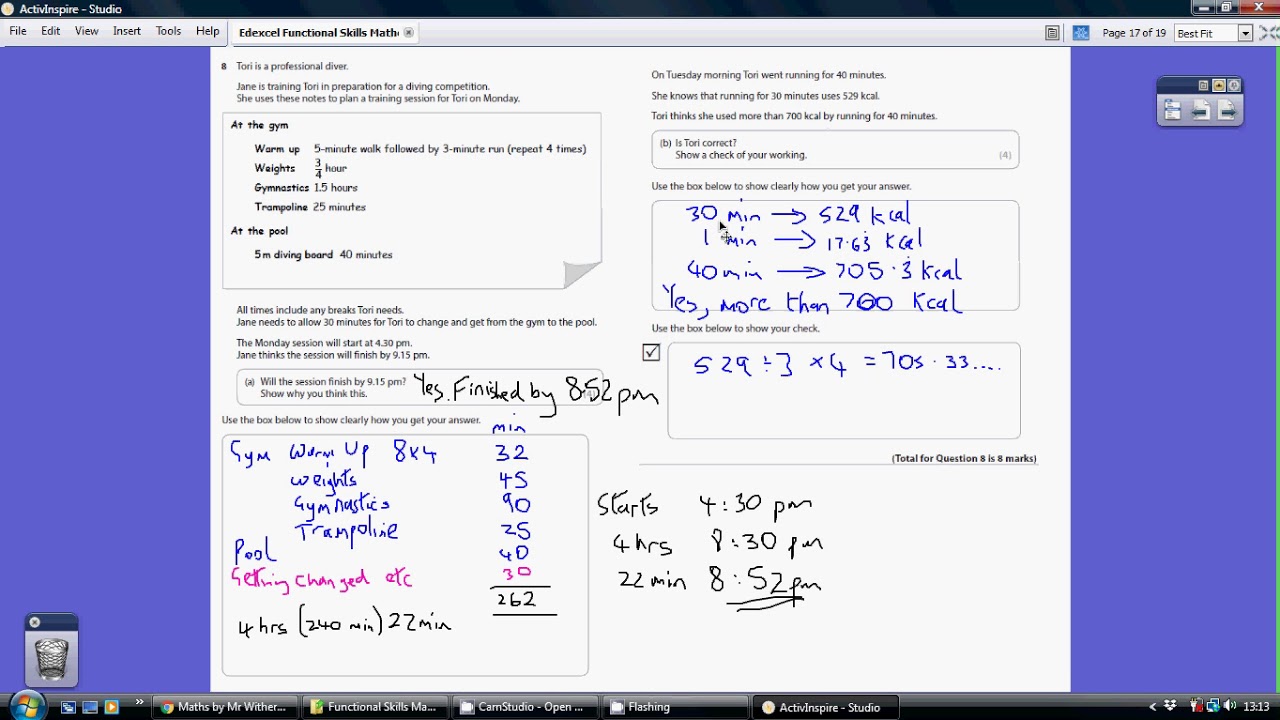 ActivInspire - Studio
File Edit View Insert Tools Help
Edexcel Functional Skills Mathe
Page 17 of 19
Best Fit
8 Tori is a professional diver.
Jane is training Tori in preparation for a diving competition.
She uses these notes to plan a training session for Tori on Monday.
At the gym
Warm up 5-minute walk followed by 3-minute run (repeat 4 times)
Weights 3/4 hour
Gymnastics 1.5 hours
Trampoline 25 minutes
At the pool
5m diving board 40 minutes
All times include any breaks Tori needs.
Jane needs to allow 30 minutes for Tori to change and get from the gym to the pool.
The Monday session will start at 4.30 pm.
Jane thinks the session will finish by 9.15 pm.
(a) Will the session finish by 9.15 pm?
Show why you think this.
(4)
Yes. Finished by 8.52 pm
Use the box below to show clearly how you get your answer.
min
Gym Warm Up 8x4 32
weights 45
Gymnastics 90
Trampoline 25
Pool 40
Getting changed etc 30
262
4 hrs (240 min) 22 min
On Tuesday morning Tori went running for 40 minutes.
She knows that running for 30 minutes uses 529 kcal.
Tori thinks she used more than 700 kcal by running for 40 minutes.
(b) Is Tori correct?
Show a check of your working.
(4)
Use the box below to show clearly how you get your answer.
30 min → 529 kcal
1 min → 17.63̇ kcal
40 min → 705.3̇ kcal
Yes, more than 700 kcal
Use the box below to show your check.
529 ÷ 3 × 4 = 705.33....
(Total for Question 8 is 8 marks)
Starts 4:30 pm
4 hrs 8:30 pm
22 min 8:52 pm
Maths by Mr Wither...
Functional Skills Ma...
CamStudio - Open ...
Flashing
ActivInspire - Studio
13:13